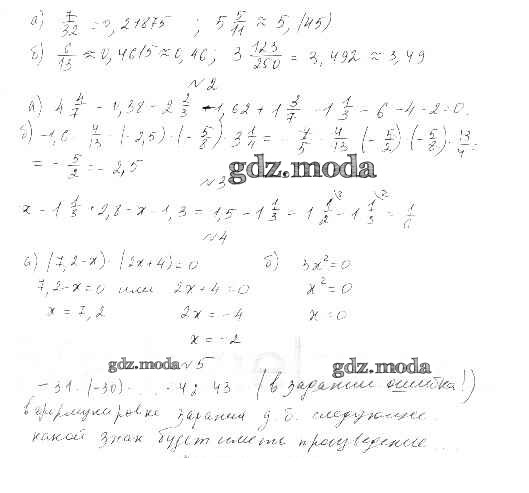 а) 7/32 = 0,21875 ; 5 5/11 ≈ 5,(45)
б) 6/13 ≈ 0,4615 ≈ 0,46; 3 123/250 = 3,492 ≈ 3,49
№2
а) 4 4/7 - 1,38 - 2 2/3 - 1,62 + 1 3/7 - 1 1/3 = 6 - 4 - 2 = 0.
б) -1,6 · 4/13 · (-2,5) · (-5/8) · 3 1/4 = · 4/13 · (-5/2) · (-5/8) · 13/4 =
= -5/2 = -2,5
gdz.moda
№3
x - 1 1/3 + 2,8 - x - 1,3 = 1,5 - 1 1/3 = 1 1/2 - 1 1/3 = 1/6
№4
а) (7,2-x) · (2x+4) = 0 б) 3x² = 0
7,2-x=0 или 2x+4=0 x² = 0
x = 7,2 2x = -4 x = 0
x = -2
gdz.moda №5 gdz.moda
-31 · (-30) · ... · 42 · 43 (в задании ошибка!)
в формулировке задания д.б. следующие
какой знак будет иметь произведение ...